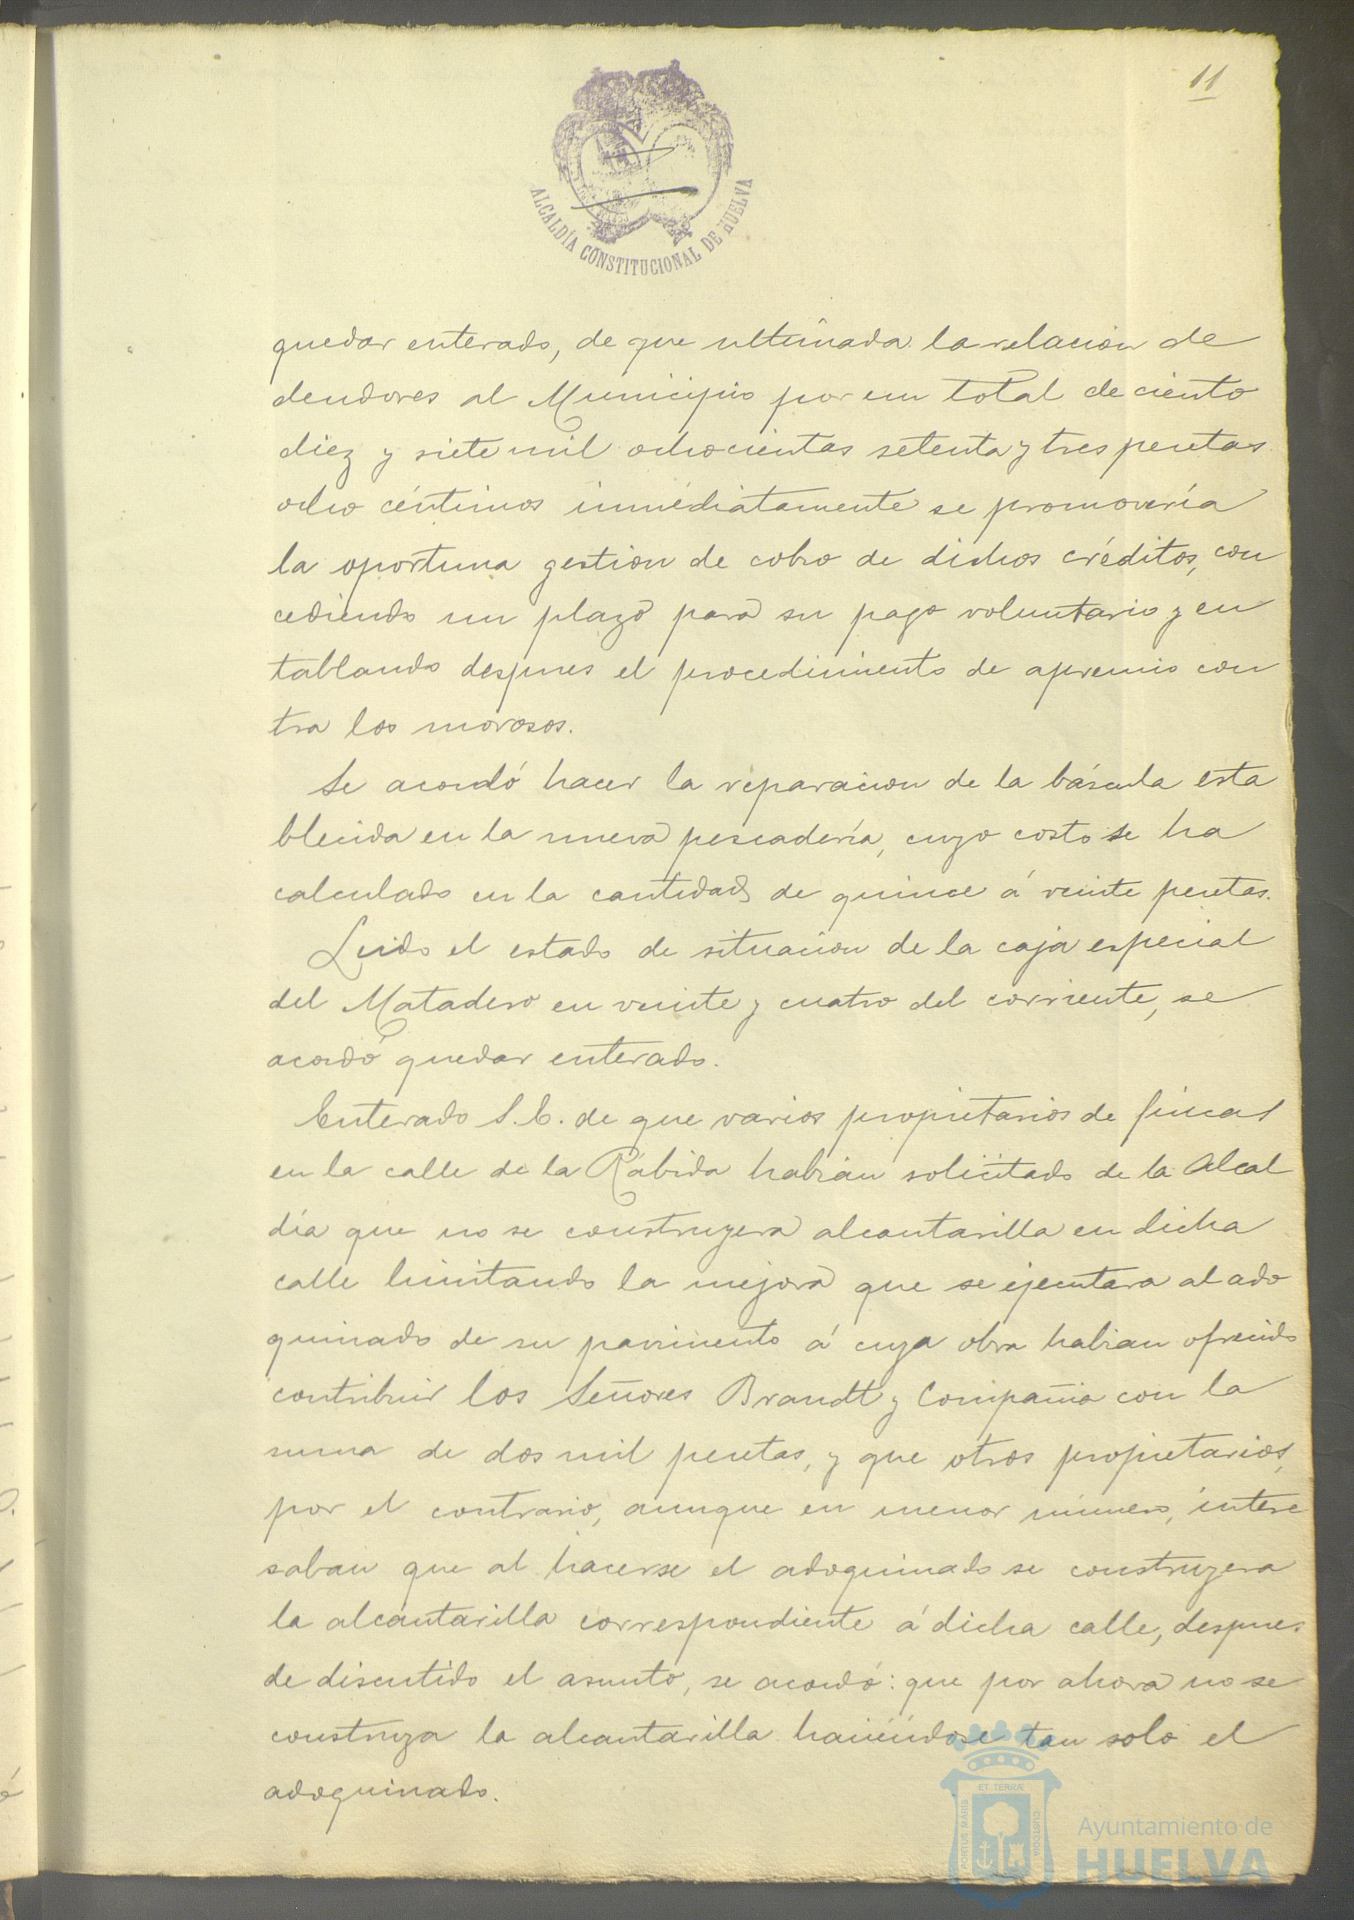 11
ALCALDÍA CONSTITUCIONAL DE HUELVA
quedar enterado, de que ultimada la relacion de
deudores al Municipio por un total de ciento
diez y siete mil ochocientas setenta y tres pesetas
ocho céntimos inmediatamente se promovería
la oportuna gestion de cobro de dichos créditos, con
cediendo un plazo para su pago voluntario y en
tablando despues el procedimiento de apremio con
tra los morosos.
Se acordó hacer la reparacion de la báscula esta
blecida en la nueva pescadería, cuyo costo se ha
calculado en la cantidad de quince á veinte pesetas.
Leido el estado de situacion de la caja especial
del Matadero en veinte y cuatro del corriente, se
acordó quedar enterado.
Enterado S. E. de que varios propietarios de fincas
en la calle de la Rábida habían solicitado de la Alcal
día que no se construyera alcantarilla en dicha
calle limitando la mejora que se ejecutara al ado
quinado de su pavimento á cuya obra habian ofrecido
contribuir los Señores Brandt y Compañia con la
suma de dos mil pesetas, y que otros propietarios,
por el contrario, aunque en menor número, intere
saban que al hacerse el adoquinado se construyera
la alcantarilla correspondiente á dicha calle, despues
de discutido el asunto, se acordó: que por ahora no se
construya la alcantarilla haciéndose tan solo el
adoquinado.
ET TERRÆ
PORTUS MARIS
CUSTODIA
Ayuntamiento de
HUELVA